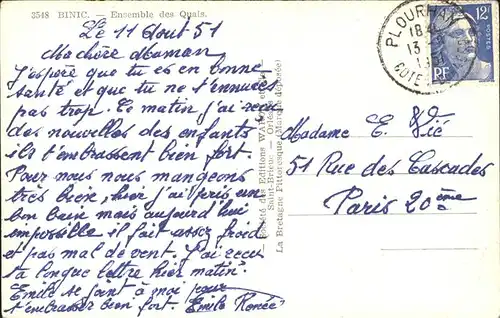 3548 BINIC. — Ensemble des Quais.
Le 11 Aout 51
Ma chère Maman
J'espère que tu es en bonne
santé et que tu ne t'ennuies
pas trop. Ce matin j'ai reçu
des nouvelles des enfants
ils t'embrassent bien fort.
Pour nous nous mangeons
très bien, hier j'ai pris un
bon bain mais aujourd'hui
impossible il fait assez froid
et pas mal de vent. J'ai reçu
ta longue lettre hier matin.
Emile se joint à moi pour
t'embrasser bien fort. Emile Renée
Société des Editions
Saint-Brieuc — Orléans
La Bretagne Pittoresque (Marque déposée)
PLOURHAN
18
13
COTE
12F
POSTES
RF
Madame E. Vic
51 Rue des Cascades
Paris 20ème